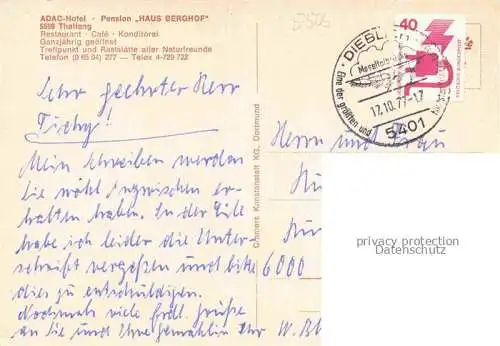 ADAC-Hotel - Pension „HAUS BERGHOF"
5559 Thalfang
Restaurant - Café - Konditorei
Ganzjährig geöffnet
Treffpunkt und Raststätte aller Naturfreunde
Telefon (0 65 04) 277 — Telex 4-729 722
Sehr geehrter Herr
Tichy!
Mein Schreiben werden
Sie wohl inzwischen er-
halten haben. In der Eile
habe ich leider die Unter-
schrift vergessen und bitte
dies zu entschuldigen.
Nochmals viele frdl. Grüße
an Sie und Ihre Gemahlin Ihr W.
Cramers Kunstanstalt KG, Dortmund
DIEBL
Eine der größten und
17.10.77-17
5401
40
DEUTSCHE BUNDESPOST
Herrn und Frau
6000
privacy protection
Datenschutz